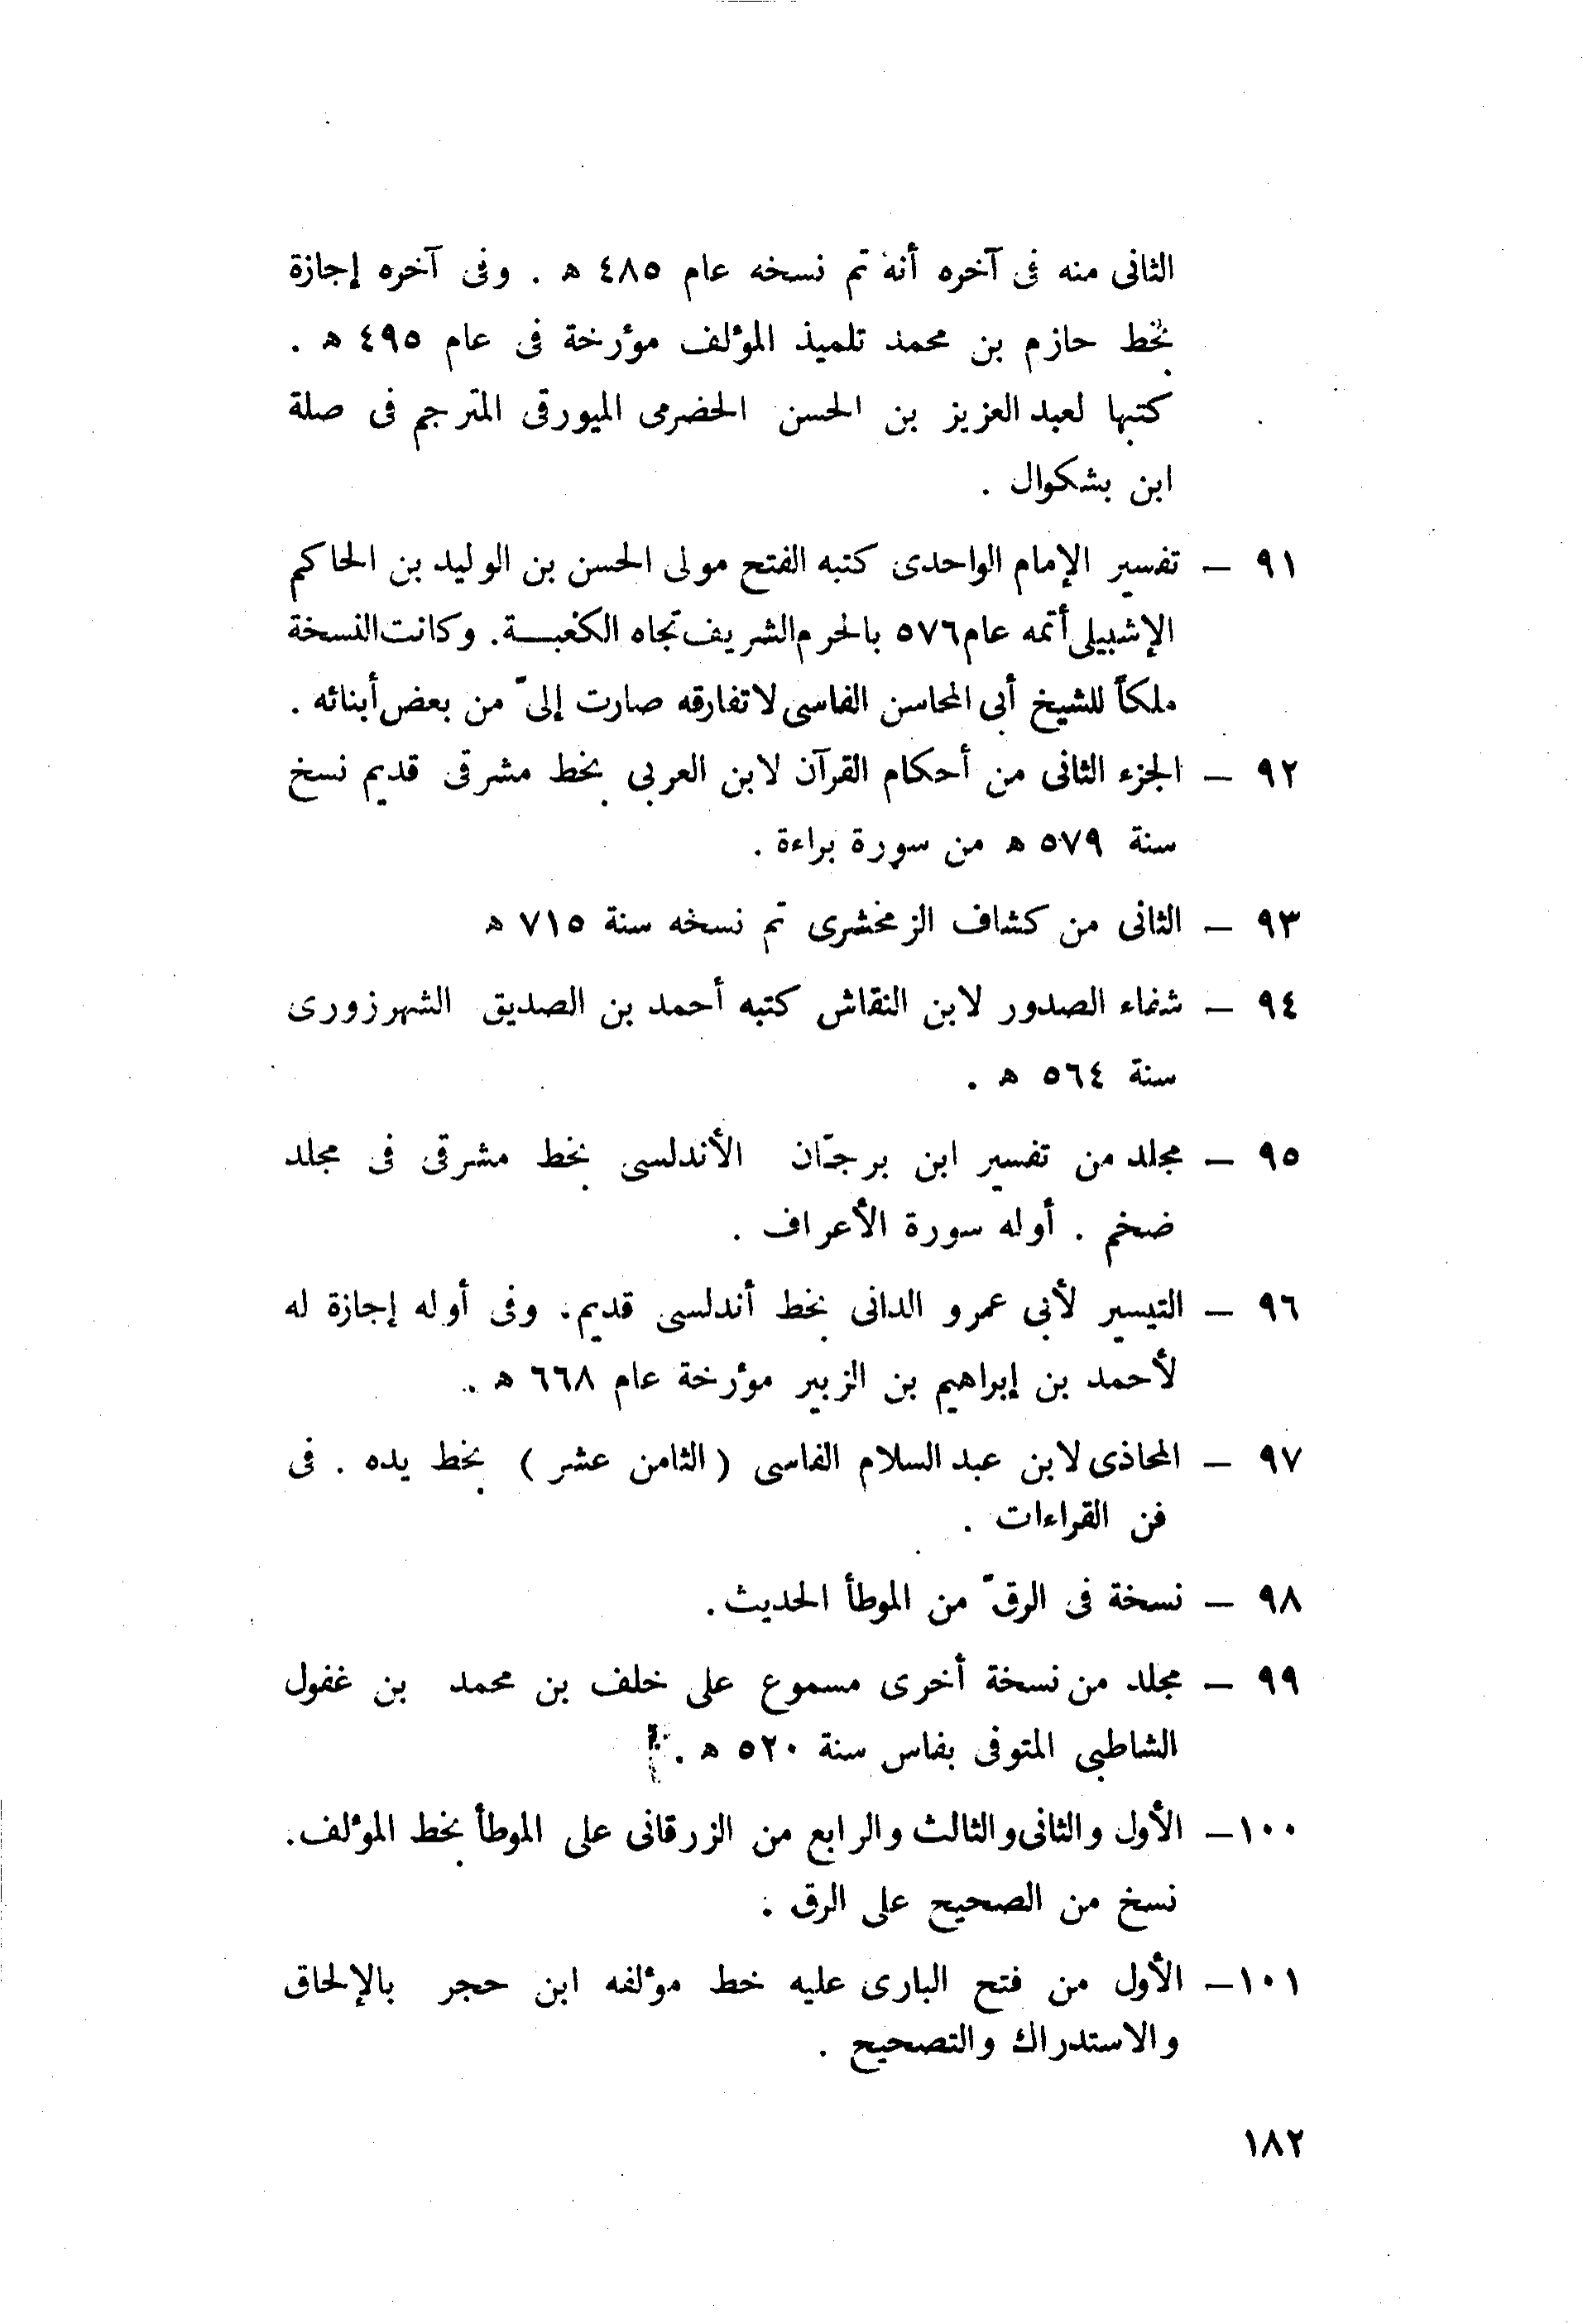 الثانى منه فى آخره أنه تم نسخه عام ٤٨٥ ه . وفى آخره إجازة
بخط حازم بن محمد تلميذ المؤلف مؤرخة فى عام ٤٩٥ ه .
كتبها لعبد العزيز بن الحسن الحضرمى الميورقى المترجم فى صلة
ابن بشكوال .
٩١ — تفسير الإمام الواحدى كتبه الفتح مولى الحسن بن الوليد بن الحاكم
الإشبيلى أتمه عام ٥٧٦ بالحرم الشريف تجاه الكعبـــة. وكانت النسخة
ملكاً للشيخ أبى المحاسن الفاسى لا تفارقه صارت إلىّ من بعض أبنائه .
٩٢ — الجزء الثانى من أحكام القرآن لابن العربى بخط مشرقى قديم نسخ
سنة ٥٧٩ ه من سورة براءة .
٩٣ — الثانى من كشاف الزمخشرى تم نسخه سنة ٧١٥ ه
٩٤ — شفاء الصدور لابن النقاش كتبه أحمد بن الصديق الشهرزورى
سنة ٥٦٤ ه .
٩٥ — مجلد من تفسير ابن برجّان الأندلسى بخط مشرقى فى مجلد
ضخم . أوله سورة الأعراف .
٩٦ — التيسير لأبى عمرو الدانى بخط أندلسى قديم. وفى أوله إجازة له
لأحمد بن إبراهيم بن الزبير مؤرخة عام ٦٦٨ ه .
٩٧ — المحاذى لابن عبد السلام الفاسى ( الثامن عشر ) بخط يده . فى
فن القراءات .
٩٨ — نسخة فى الرقّ من الموطأ الحديث .
٩٩ — مجلد من نسخة أخرى مسموع على خلف بن محمد بن غفول
الشاطبى المتوفى بفاس سنة ٥٢٠ ه .
١٠٠— الأول والثانى والثالث والرابع من الزرقانى على الموطأ بخط المؤلف.
نسخ من الصحيح على الرق :
١٠١— الأول من فتح البارى عليه خط مؤلفه ابن حجر بالإلحاق
والاستدراك والتصحيح .
١٨٢